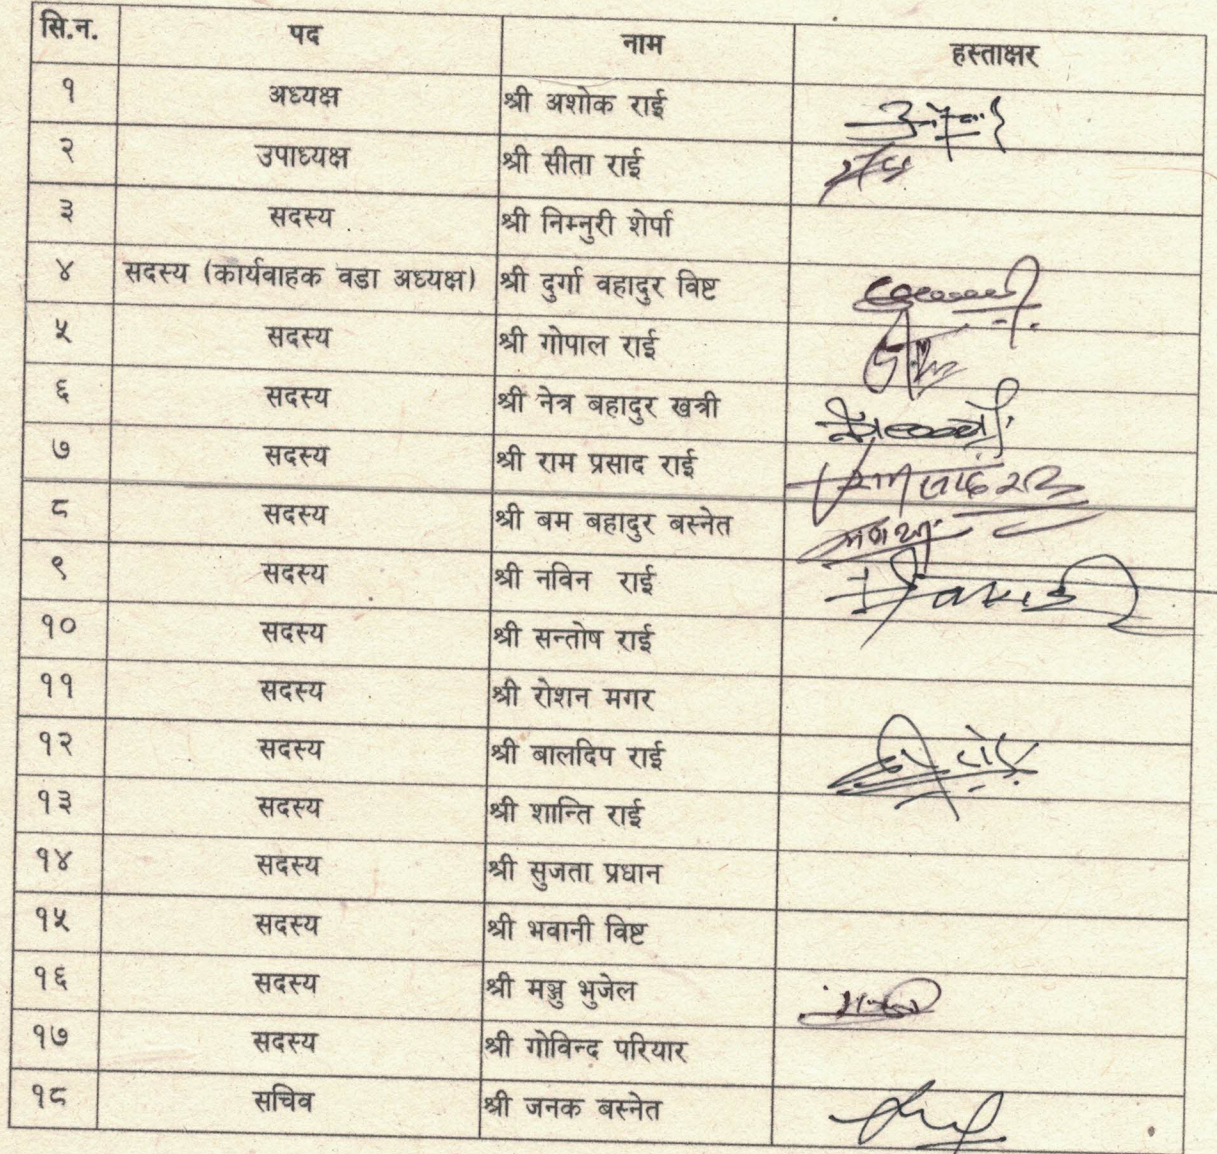 सि.न. पद नाम हस्ताक्षर
१ अध्यक्ष श्री अशोक राई
२ उपाध्यक्ष श्री सीता राई
३ सदस्य श्री निम्नुरी शेर्पा
४ सदस्य (कार्यवाहक वडा अध्यक्ष) श्री दुर्गा वहादुर विष्ट
५ सदस्य श्री गोपाल राई
६ सदस्य श्री नेत्र बहादुर खत्री
७ सदस्य श्री राम प्रसाद राई
८ सदस्य श्री बम बहादुर बस्नेत
९ सदस्य श्री नविन राई
१० सदस्य श्री सन्तोष राई
११ सदस्य श्री रोशन मगर
१२ सदस्य श्री बालदिप राई
१३ सदस्य श्री शान्ति राई
१४ सदस्य श्री सुजता प्रधान
१५ सदस्य श्री भवानी विष्ट
१६ सदस्य श्री मञ्जु भुजेल
१७ सदस्य श्री गोविन्द परियार
१८ सचिव श्री जनक बस्नेत